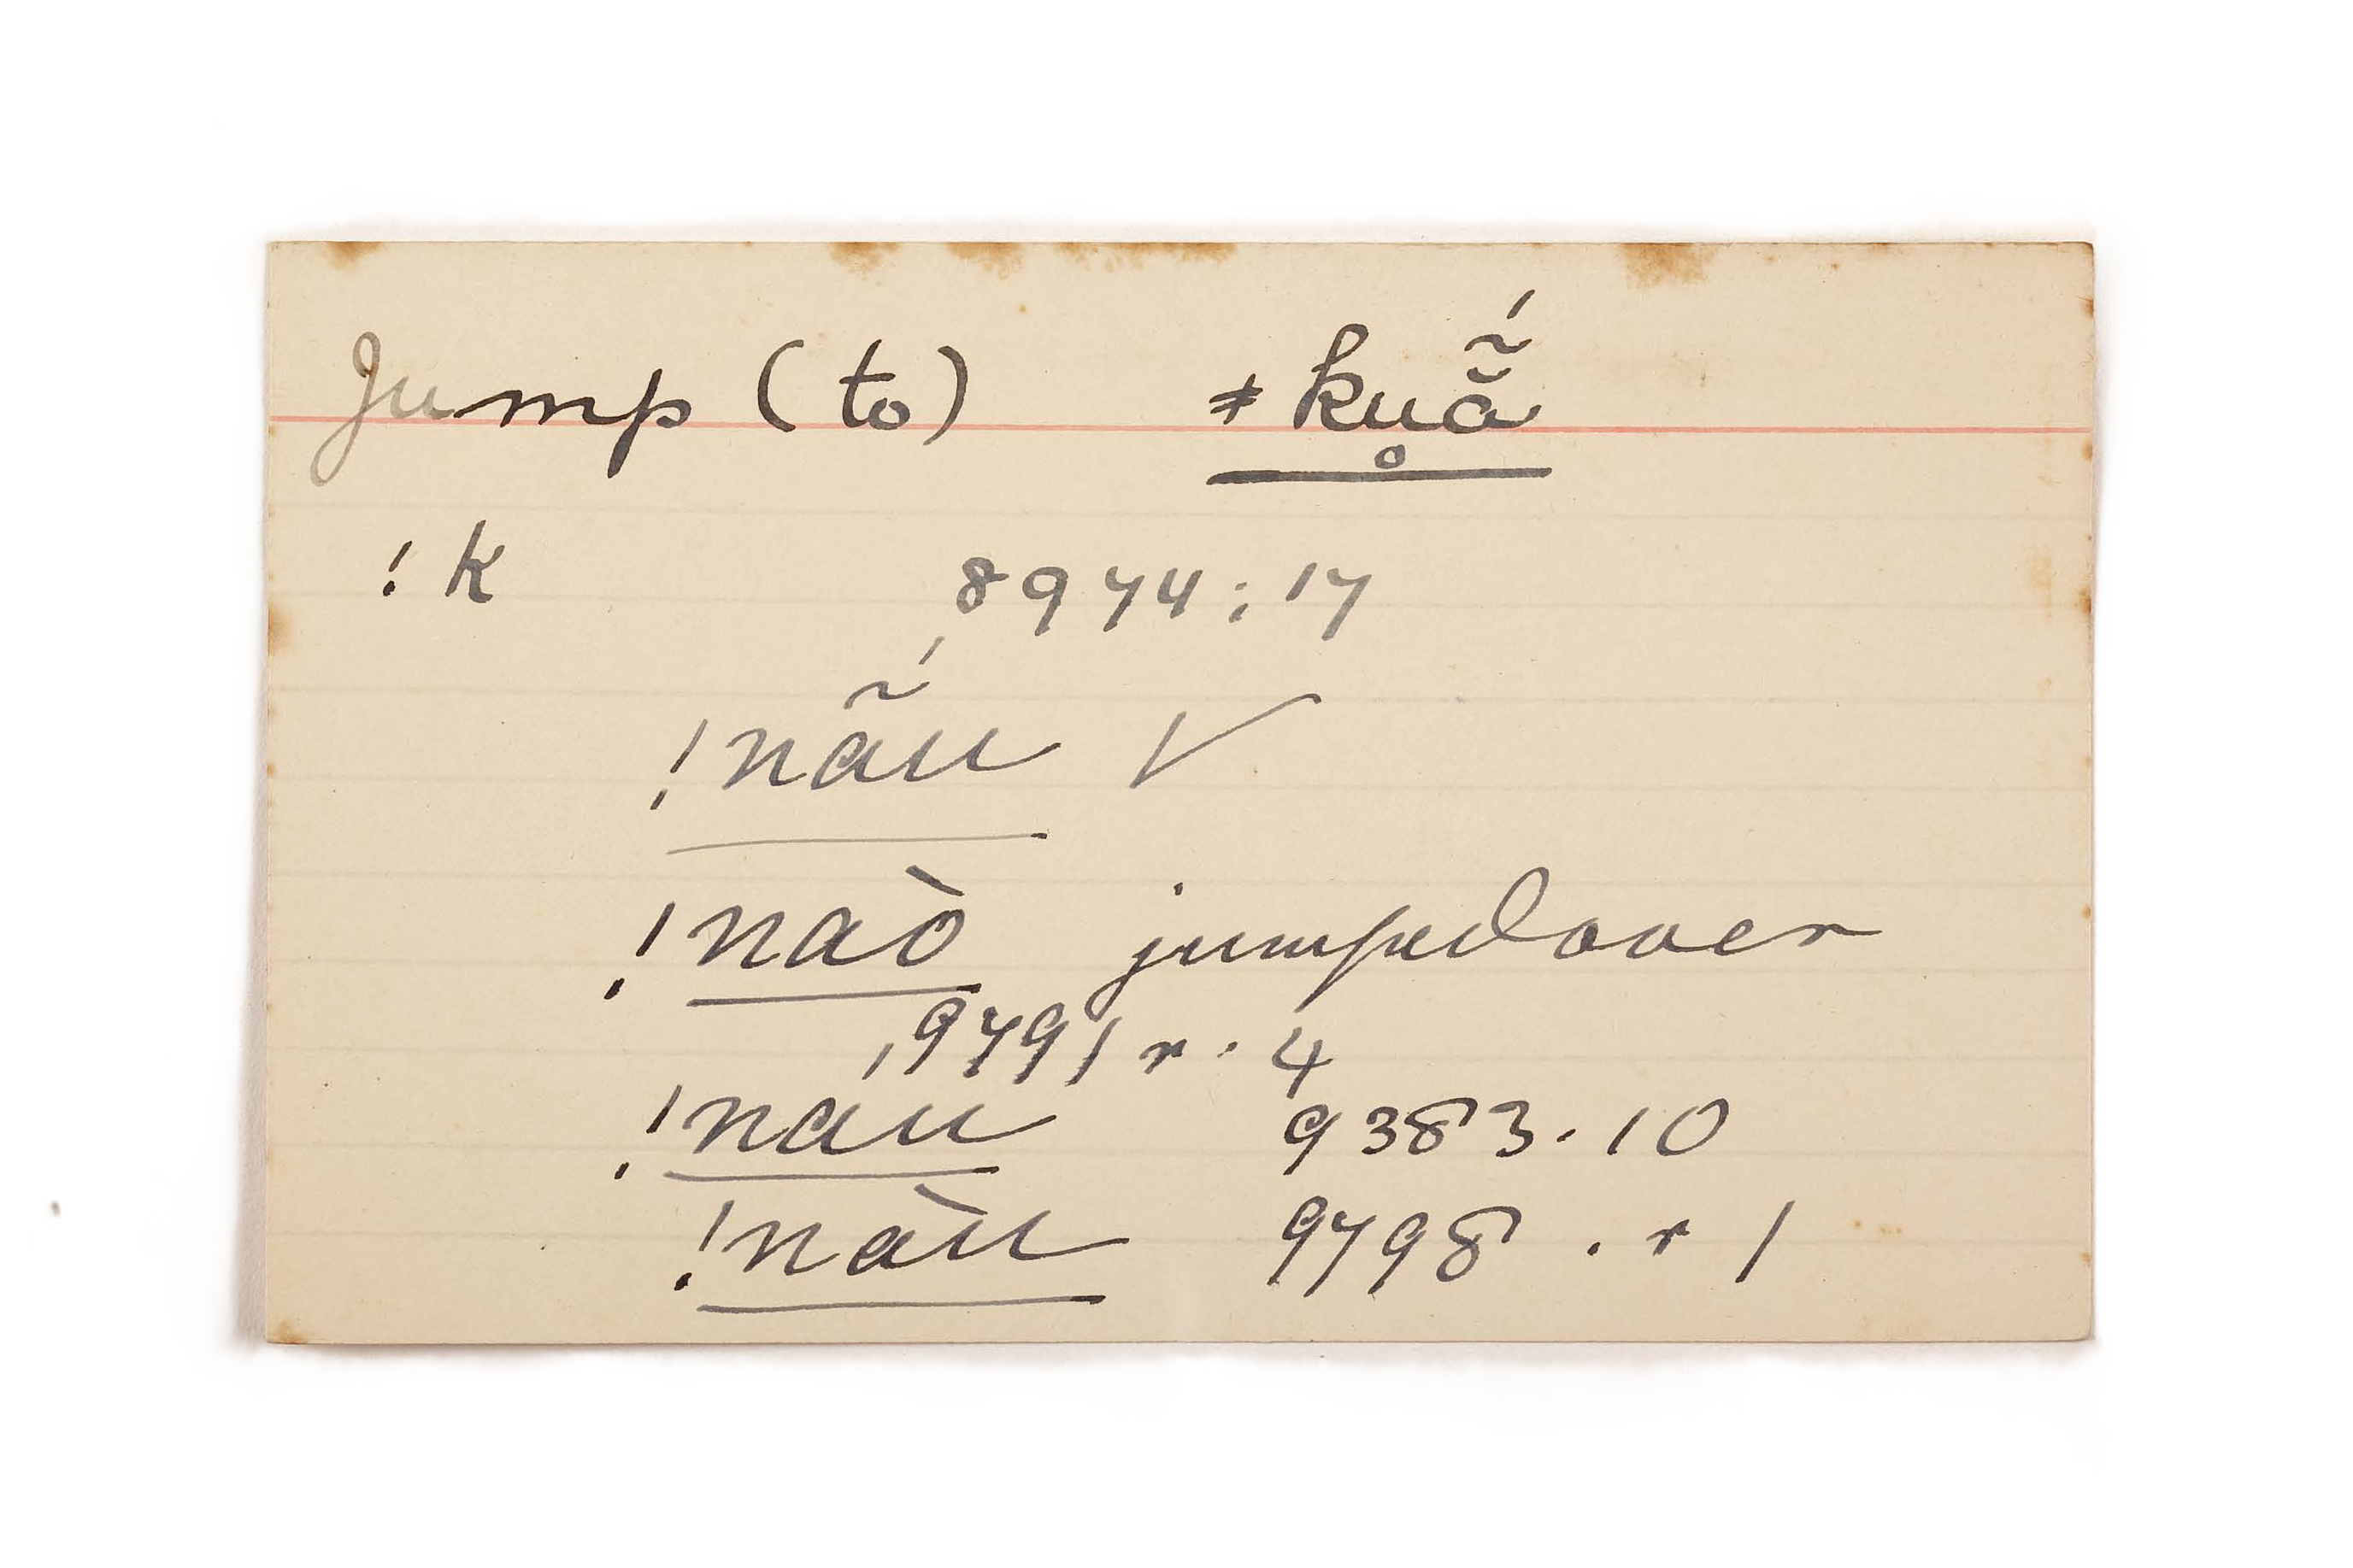 Jump (to) ǂkṵã̆́
!k 8974:17
!nã̆́u ✓
!naò jumped over
9791 r. 4
!náu 9383.10
!nàu 9798 . r 1